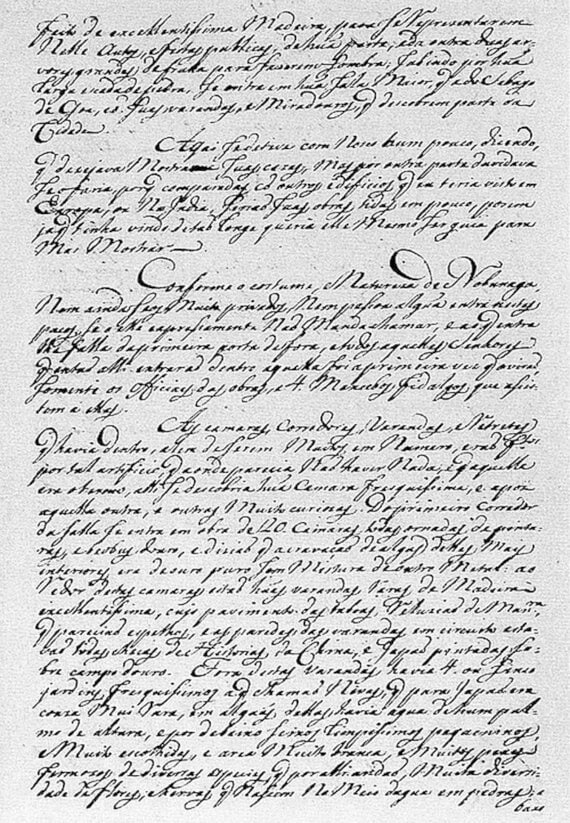 feito de excellentissima Madeira, para se Representarem
Nelle Autos, e festas publicas, de hũa parte, e da outra duas ar-
vores grandes de fruta para fazerem sombra; Subindo por hũa
larga escada de pedra, se entra em hũa Sala Maior, q̃ a do Sabayo
de Goa, cõ suas varandas, e Miradouros, q̃ descobrem parte da
Cidade.
Aqui se deteve com Nosco hum pouco, dizendo,
q̃ desejava Mostrarme suas cazas, Mas por outra parte duvidava
se o faria, porq̃ comparadas cõ outros edificios q̃ eu teria visto em
Europa, ou Na India, serião suas obras tidas em pouco, porem
ja q̃ tinha vindo de tão longe queria elle Mesmo ser guia para
Mas Mostrar.
Conforme o costume, e Natureza de Nobunaga,
Nem ainda seos Muito privados, Nem pesoa algũa entra nestes
paços, se o elle expresamente Não Manda chamar, e ao q̃ entra
lhe falla da primeira porta de fora, e todos aquelles Senhores
q̃ então alli entrarão dentro aquella foi a primeira vez q̃ os virão
somente os officiaes das obras, e 4. Mancebos fidalgos, que asis-
tem a elles.
As camaras, Corredores, Varandas, e Retretes
q̃ havia dentro, alem de serem Muitos em Numero, erão feitos
por tal artificio q̃ aonde parecia Não haver Nada, e q̃ aquelle
era o termo, alli se descobria hũa Camara fresquissima, e apos
aquella outra, e outras Muito curiosas. Do primeiro Corredor
da salla se entra em obra de 20. Camaras, todas ornadas de pintu-
ras, e beobus d'ouro, e dizião q̃ a cravação de algũas dellas Mais
interiores era de ouro puro sem Mistura de outro Metal: ao
redor destas camaras estão hũas varandas, raras, de Madeira
excellentissima, cujo pavimento das taboas, reluzião de Man.ra
q̃ parecião espelhos, e as paredes das varandas em circuito esta-
vão todas cheas de Historias da China, e Japão pintadas so-
bre campo d'ouro. Fora destas varandas havia 4. ou sinco
jardins fresquissimos a q̃ chamão Nivas, q̃ para Japão era
couza Mui rara, em algũs delles havia agua de hum pal-
mo de altura, e por debaixo seixos limpissimos pequeninos,
e Muito escolhidos, e area Muito branca, e Muitos peixes
fermozos de diversas especies q̃ por alli andão, Muita diversi-
dade de flores, e hervas q̃ nasem No Meio dagua em pedras, e
baxo